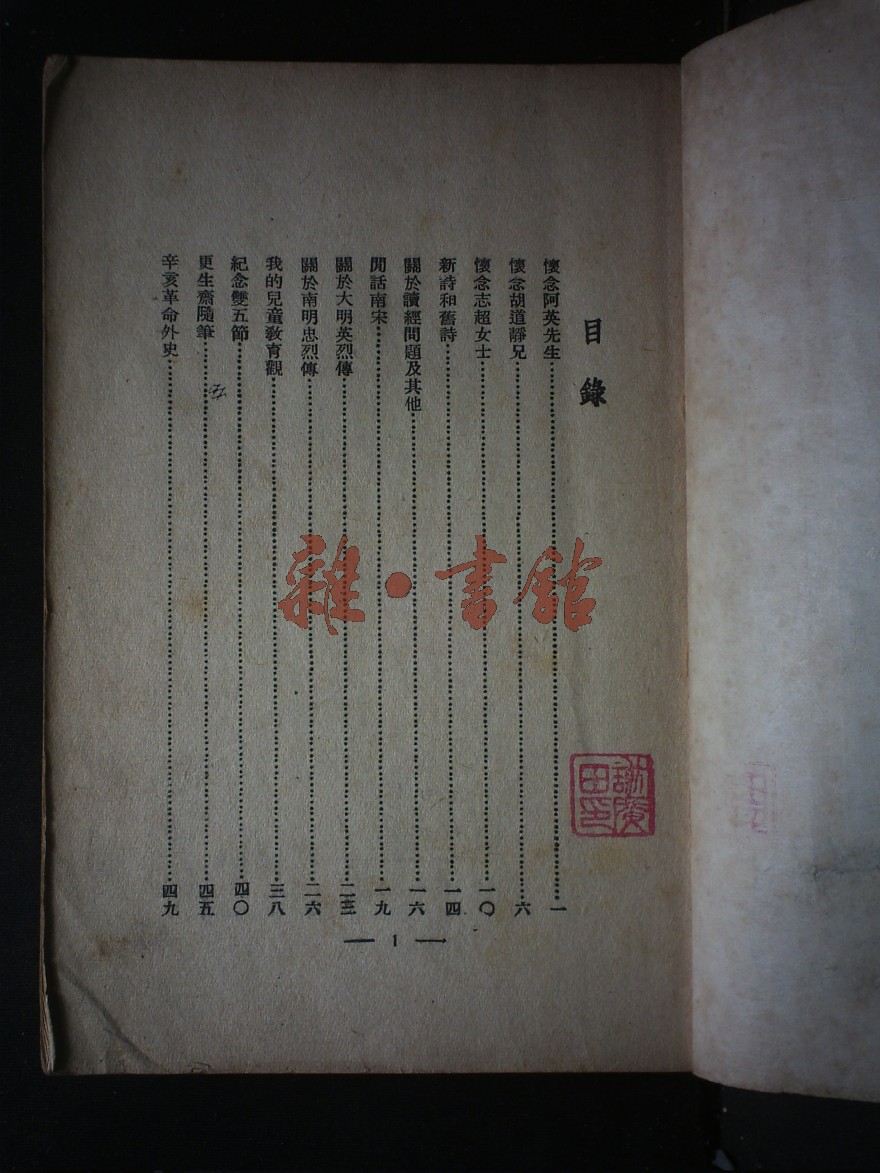 目錄
懷念阿英先生……一
懷念胡道靜兄……六
懷念志超女士……一〇
新詩和舊詩……一四
關於讀經問題及其他……一六
閒話南宋……一九
關於大明英烈傳……二三
關於南明忠烈傳……二六
我的兒童教育觀……三八
紀念雙五節……四〇
更生齋隨筆……四五
辛亥革命外史……四九
— 1 —
雜·書館